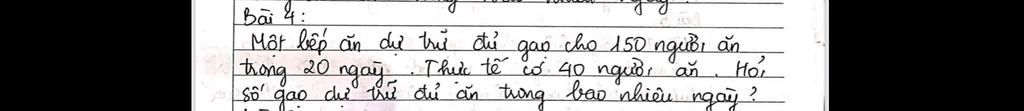 Bài 4:
Một bếp ăn dự trữ đủ gạo cho 150 người ăn
trong 20 ngày. Thực tế có 40 người ăn. Hỏi
số gạo dự trữ đủ ăn trong bao nhiêu ngày?